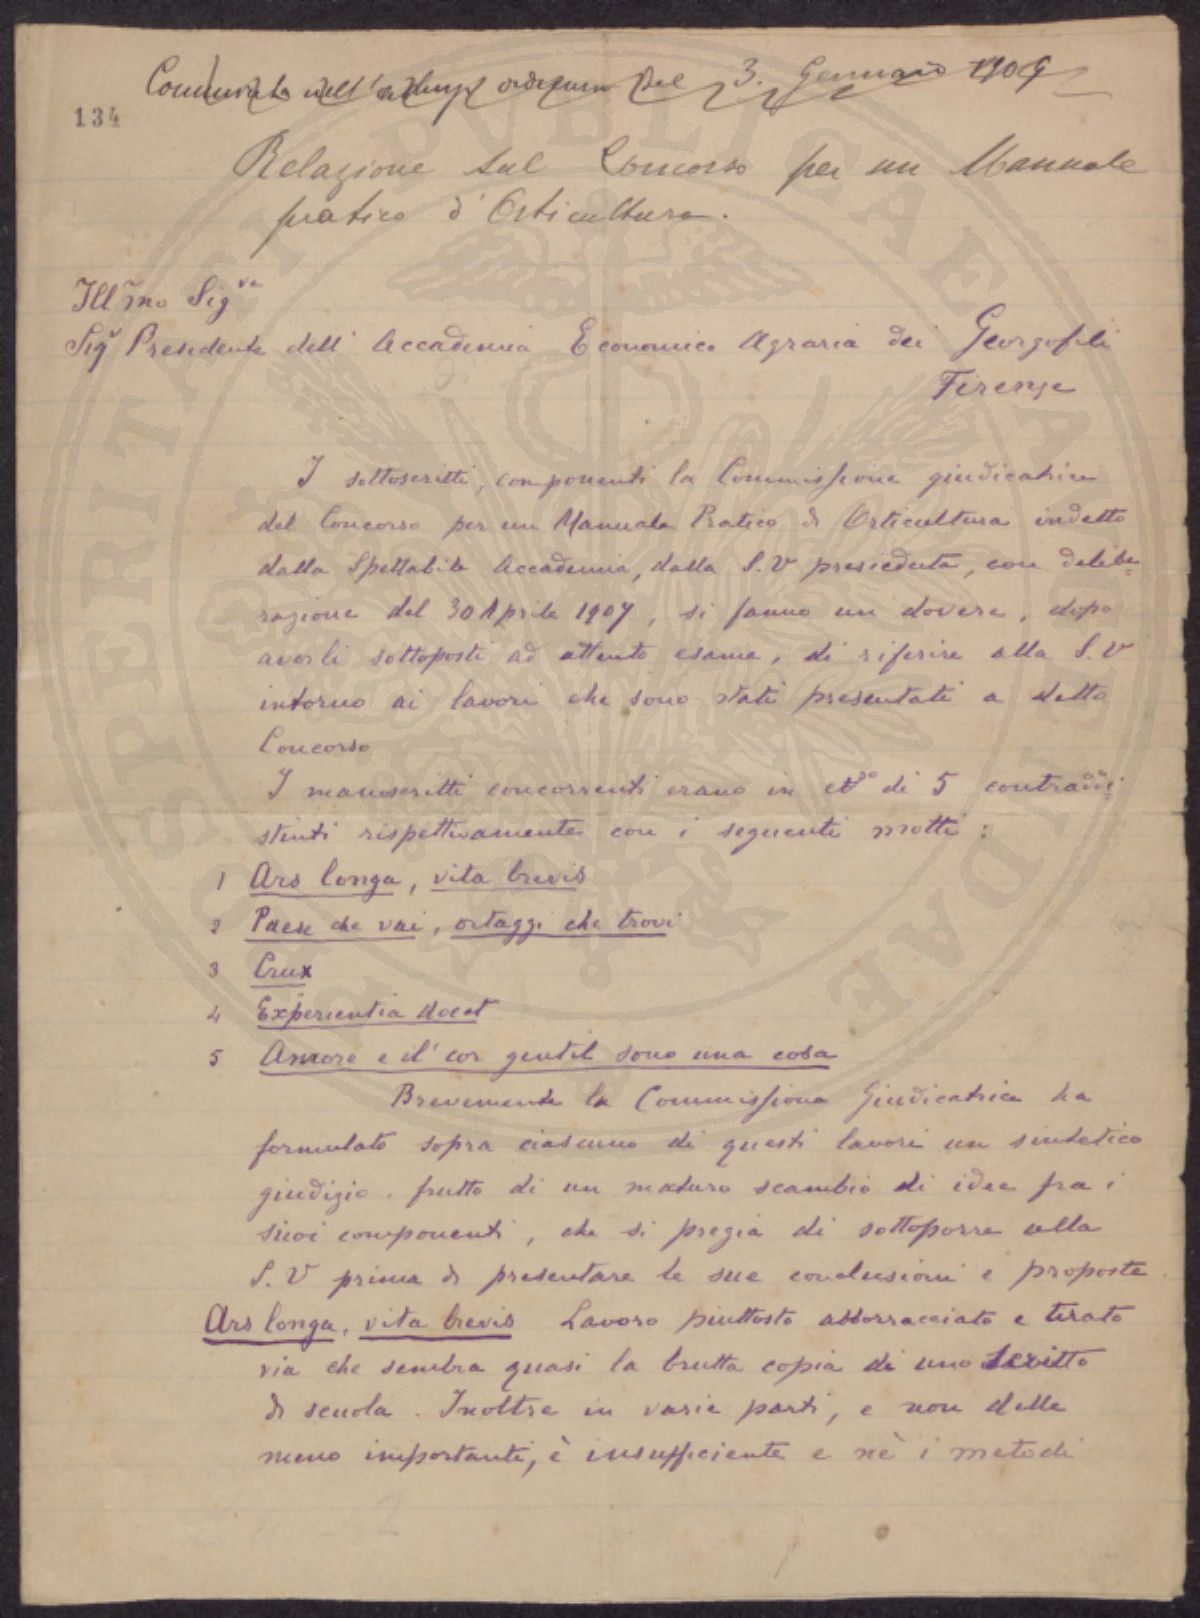 Comunicata nell'adunza ordinaria del 3. Gennaio 1909
134
Relazione sul Concorso per un Manuale
pratico d'Orticultura.
Ill mo Sig re
Sigr Presidente dell' Accademia Economico Agraria dei Georgofili
Firenze
I sottoscritti, componenti la Commissione giudicatrice
del Concorso per un Manuale Pratico di Orticultura indetto
dalla Spettabile Accademia, dalla S.V presieduta, con delibe=
razione del 30 Aprile 1907, si fanno un dovere, dopo
averli sottoposti ad attento esame, di riferire alla S.V
intorno ai lavori che sono stati presentati a detto
Concorso
I manoscritti concorrenti erano in No di 5 contraddi
stinti rispettivamente con i seguenti motti:
1 Ars longa, vita brevis
2 Paese che vai, ortaggi che trovi
3 Crux
4 Experientia docet
5 Amore e il' cor gentil sono una cosa
Brevemente la Commissione Giudicatrice ha
formulato sopra ciascuno di questi lavori un sintetico
giudizio. frutto di un maturo scambio di idee fra i
suoi componenti, che si pregia di sottoporre alla
S.V prima di presentare le sue conclusioni e proposte.
Ars longa, vita brevis Lavoro piuttosto abborracciato e tirato
via che sembra quasi la brutta copia di uno scritto
di scuola. Inoltre in varie parti, e non delle
meno importanti, è insufficiente e nè i metodi